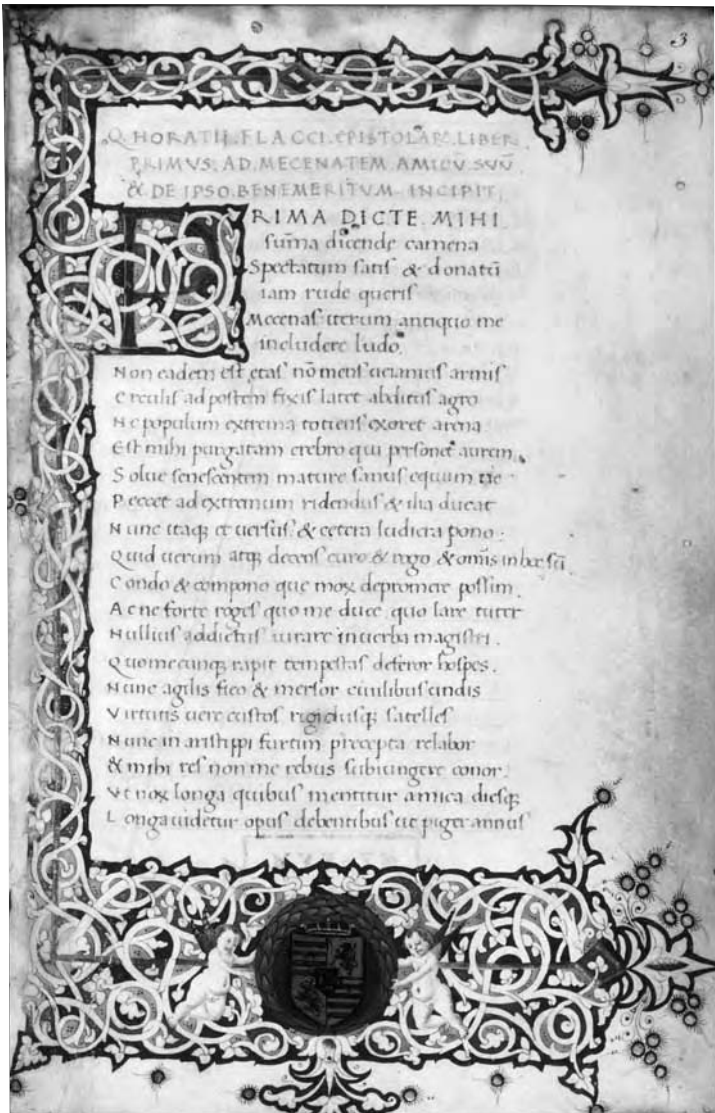 3
Q. HORATII. FLACCI. EPISTOLAR̃. LIBER
PRIMVS. AD. MECENATEM. AMICV̄ SVV̄
& DE IPSO. BENEMERITVM INCIPIT
PRIMA DICTE. MIHI
sum̄a dicende camena
Spectatum satis & donatū
iam rude queris
Mecenas iterum antiquo me
includere ludo.
Non eadem est etas nō mens ueianius armis
Creulis ad postem fixis latet abditus agro
Ne populum extrema totiens exoret arena
Est mihi purgatam crebro qui personet aurem
Solue senescentem mature sanus equum ne
Peccet ad extremum ridendus & ilia ducat
Nunc itaq; et uersus & cetera ludicra pono.
Quid uerum atq; decens curo & rogo & omīs in hoc sū
Condo & compono que mox depromere possim.
Ac ne forte roges quo me duce quo lare tuter
Nullius addictus iurare in uerba magistri.
Quomecunq; rapit tempestas deferor hospes.
Nunc agilis fico & mersor ciuilibus undis
Virtutis uere custos rigidusq; satelles
Nunc in aristippi furtim precepta relabor
& mihi res non me rebus subiungere conor.
Vt nox longa quibus mentitur amica diesq;
Longa uidetur opus debentibus ut piger annus